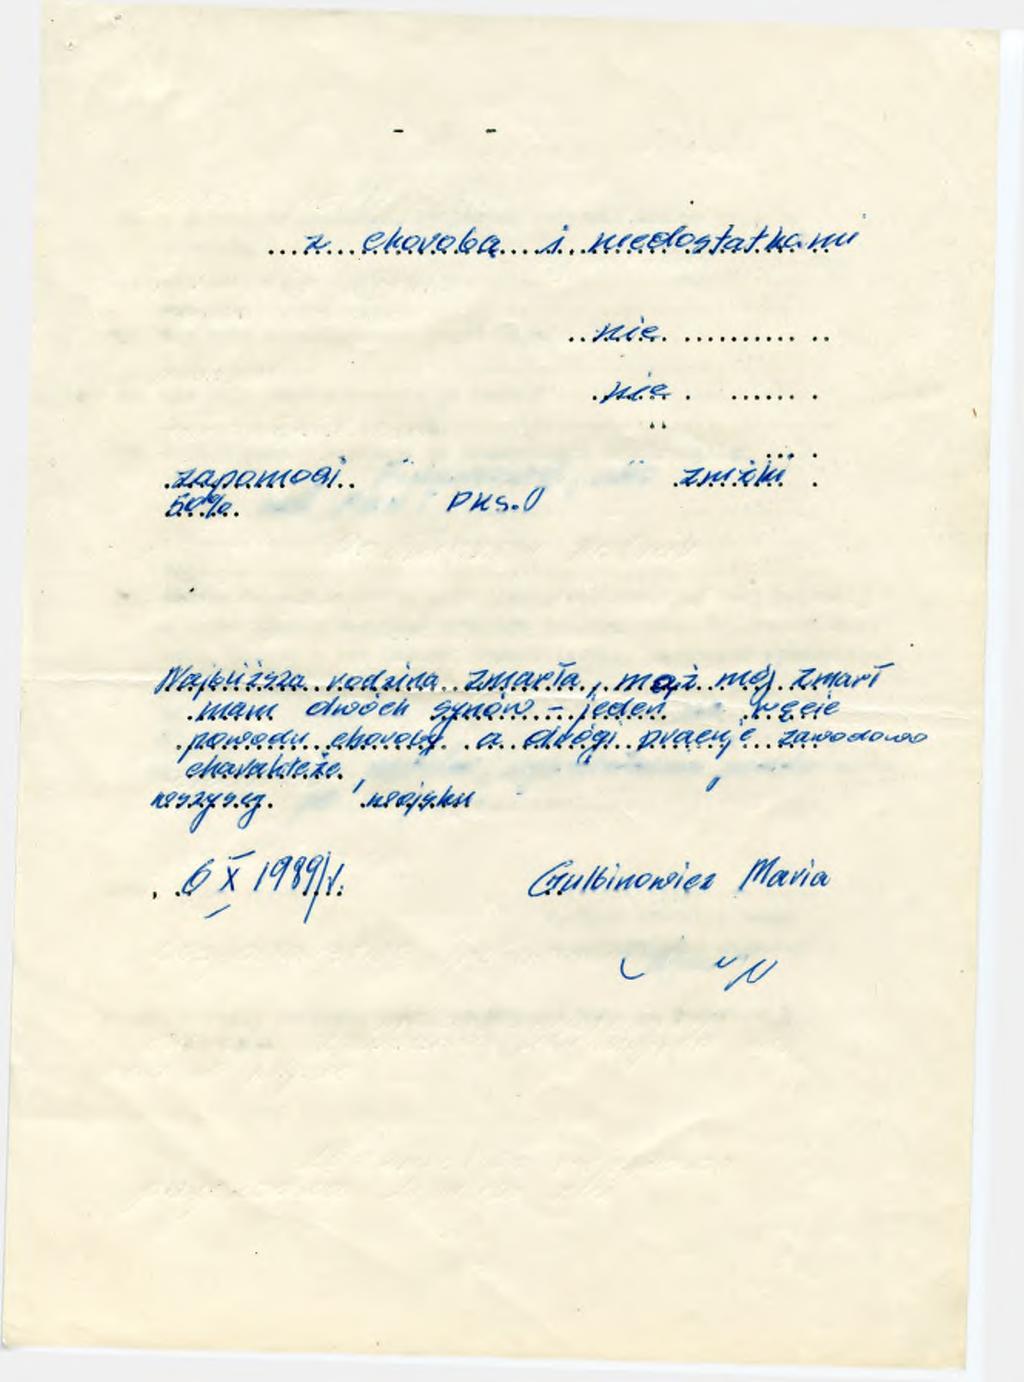 z chorobą i niedostatkami
nie
nie
zapomogi zniżki
50% PKS.U
Najbliższa rodzina zmarła, mąż mój zmarł
mam dwóch synów - jeden
powodu choroby a drógi pracuje zawodowo
charakteże
wojsku
6 X 1989/r.
Gulbinowicz Maria